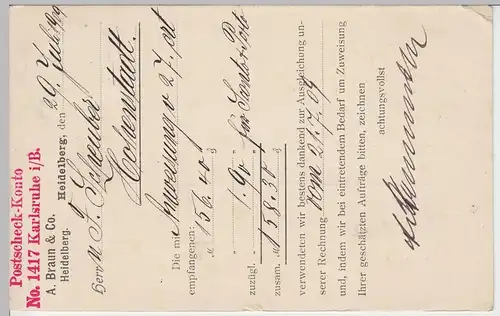 Postscheck-Konto
No. 1417 Karlsruhe i/B.
A. Braun & Co.
Heidelberg.
Heidelberg, den 29. Juli 1909
Herrn
Hohenstadt.
Die mit Anweisung v 27. crt
empfangenen: M 156.40 ₰
zuzügl. " 1.90 " für Porto
zusam. M 158.30 ₰
verwendeten wir bestens dankend zur Ausgleichung un-
serer Rechnung vom 21.7.09
und, indem wir bei eintretendem Bedarf um Zuweisung
Ihrer geschätzten Aufträge bitten, zeichnen
achtungsvollst